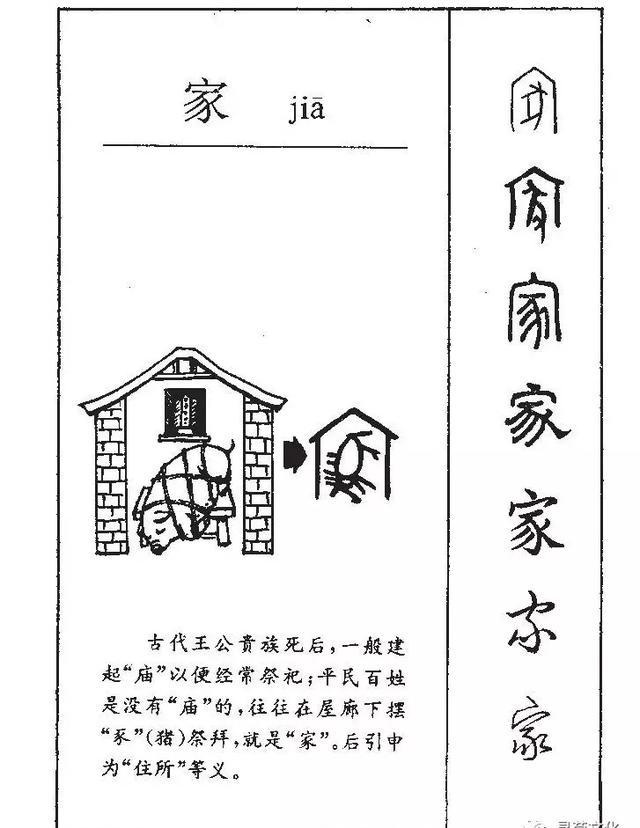 家 jiā
古代王公贵族死后，一般建
起“庙”以便经常祭祀；平民百姓
是没有“庙”的，往往在屋廊下摆
“豕”(猪)祭拜，就是“家”。后引申
为“住所”等义。
家
家
家
家
家
家
家